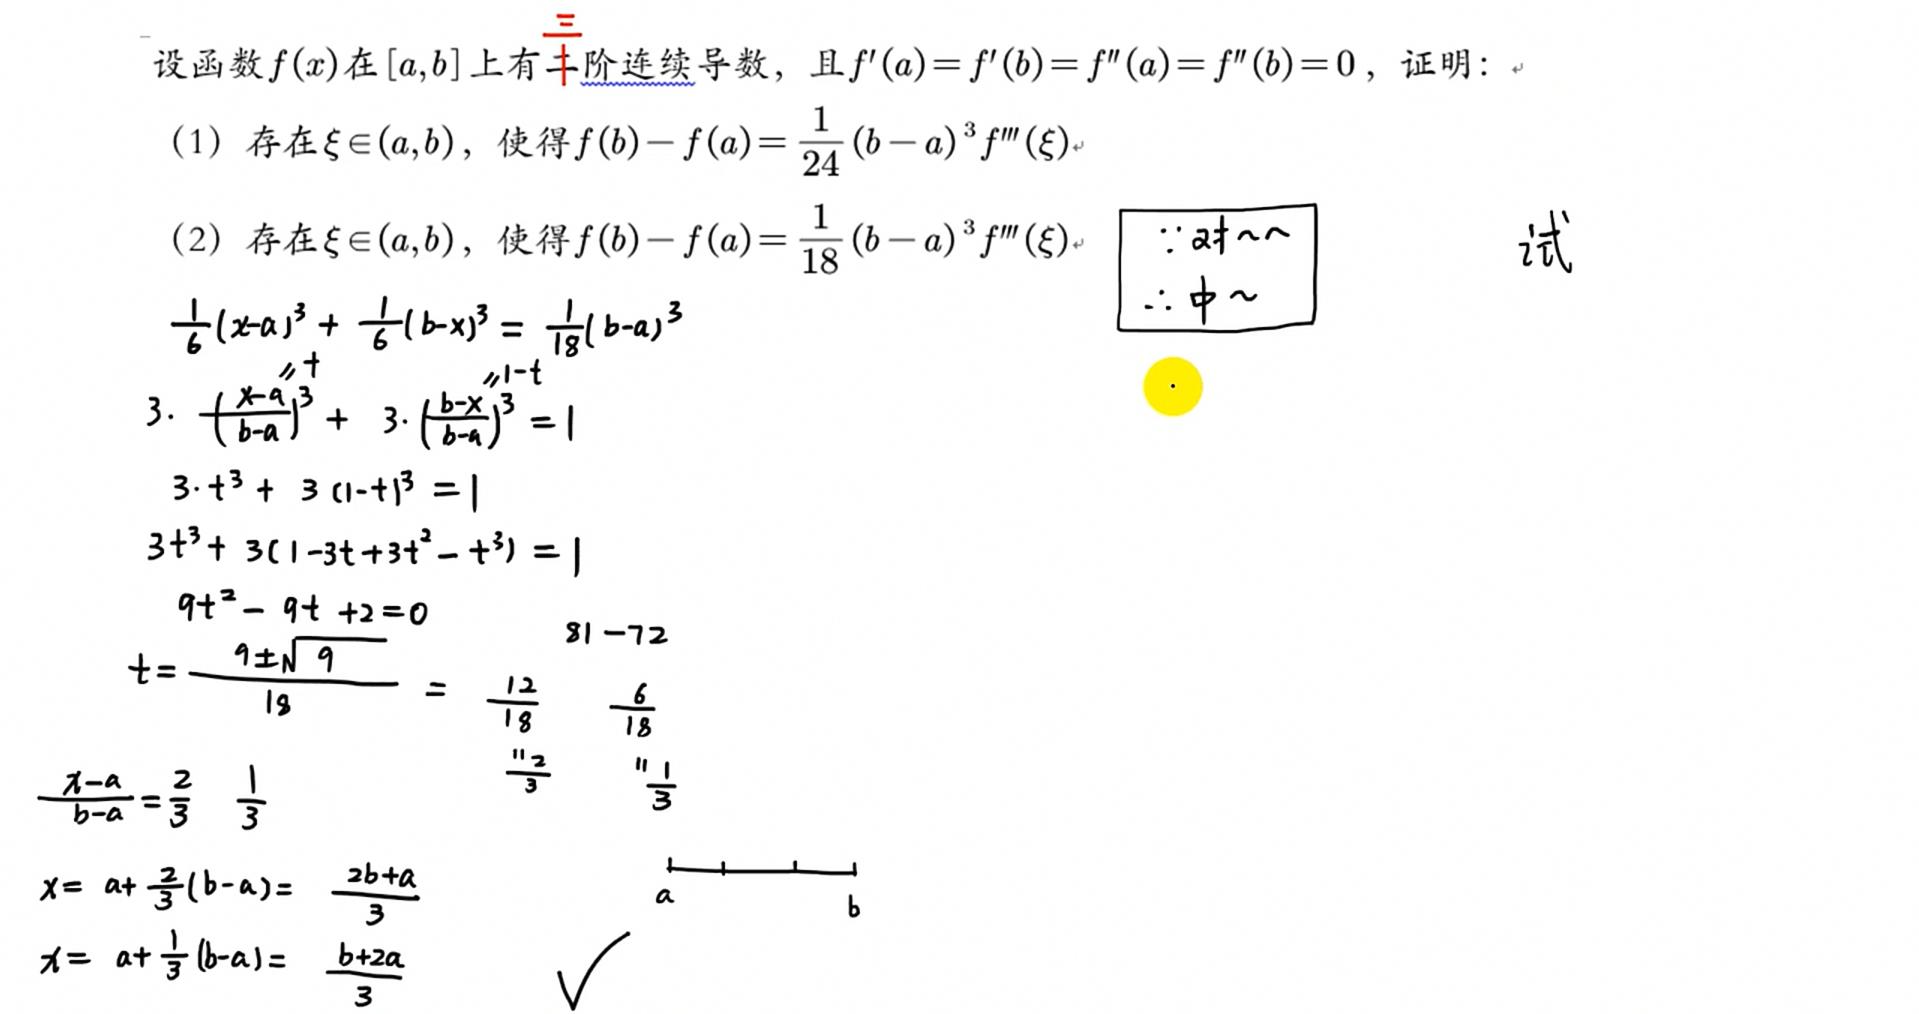 三
设函数f(x)在[a,b]上有二阶连续导数，且f′(a)=f′(b)=f″(a)=f″(b)=0，证明：
（1）存在ξ∈(a,b)，使得f(b)−f(a)=1/24(b−a)³f‴(ξ)
（2）存在ξ∈(a,b)，使得f(b)−f(a)=1/18(b−a)³f‴(ξ)
∵对~~
∴中~
试
1/6(x-a)³ + 1/6(b-x)³ = 1/18(b-a)³
=t =1-t
3·((x-a)/(b-a))³ + 3·((b-x)/(b-a))³ = 1
3·t³ + 3(1-t)³ = 1
3t³ + 3(1-3t+3t²-t³) = 1
9t² - 9t +2=0
81-72
t= (9±√9)/18 = 12/18 6/18
=2/3 =1/3
(x-a)/(b-a) = 2/3 1/3
x= a+2/3(b-a)= (2b+a)/3
a b
x= a+1/3(b-a)= (b+2a)/3
√